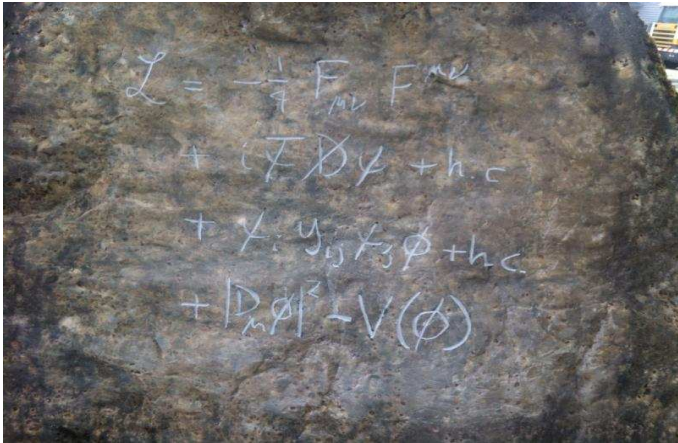 ℒ = -¼ F_μν F^μν
+ i ψ̄ D̸ ψ + h.c
+ ψ_i y_ij ψ_j φ + h.c.
+ |D_μ φ|² - V(φ)